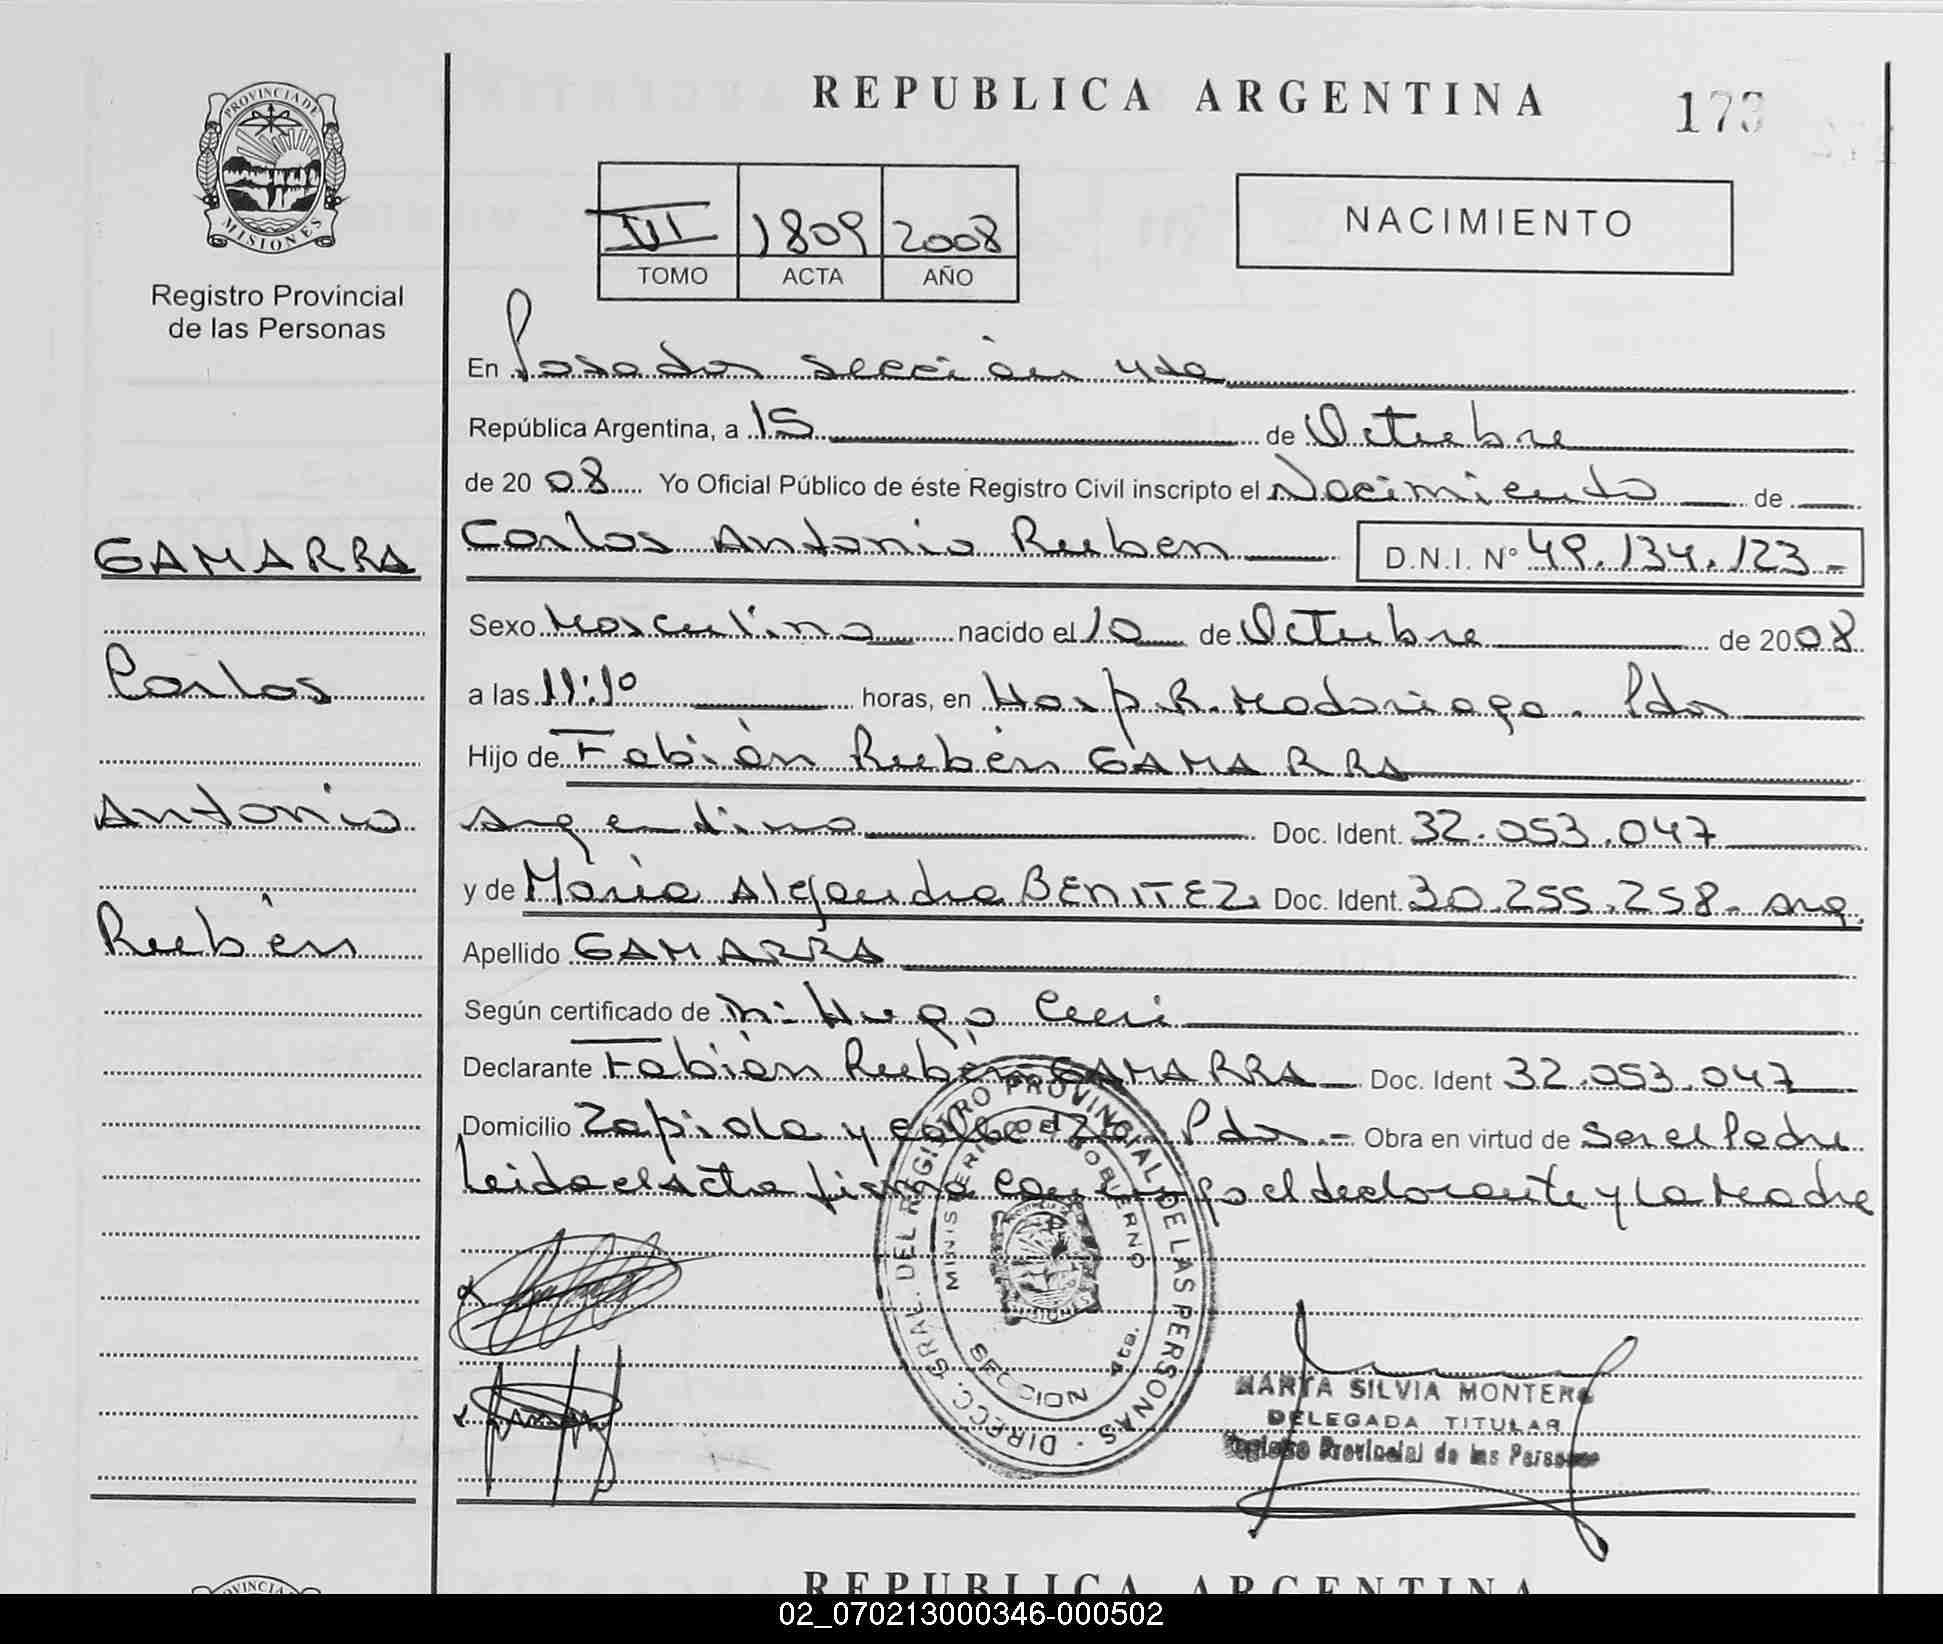 REPUBLICA ARGENTINA
173
PROVINCIA DE
MISIONES
Registro Provincial
de las Personas
III 1809 2008
TOMO ACTA AÑO
NACIMIENTO
En Posadas sección 4ta
República Argentina, a 15 de Octubre
de 2008 Yo Oficial Público de éste Registro Civil inscripto el Nacimiento de
GAMARRA
Carlos
Antonio
Rubén
Carlos Antonio Ruben D.N.I. N° 49.134.123-
Sexo Masculino nacido el 10 de Octubre de 2008
a las 11:10 horas, en Hosp. R. Madariaga. Pdas
Hijo de Fabián Rubén GAMARRA
argentino Doc. Ident. 32.053.047
y de María Alejandra BENITEZ. Doc. Ident. 30.255.258- arg.
Apellido GAMARRA
Según certificado de Dr: Hugo
Declarante Fabián Rubén GAMARRA Doc. Ident 32.053.047
Domicilio Zapiola y calle Pdas.- Obra en virtud de Ser el Padre
Leida el acta firma conmigo el declarante y la Madre
DIRECC. GRAL. DEL REGISTRO PROVINCIAL DE LAS PERSONAS
MINISTERIO DE GOBIERNO
SECCION 4ta.
MARTA SILVIA MONTERO
DELEGADA TITULAR
Registro Provincial de las Personas
PROVINCIA
REPUBLICA ARGENTINA
02_070213000346-000502